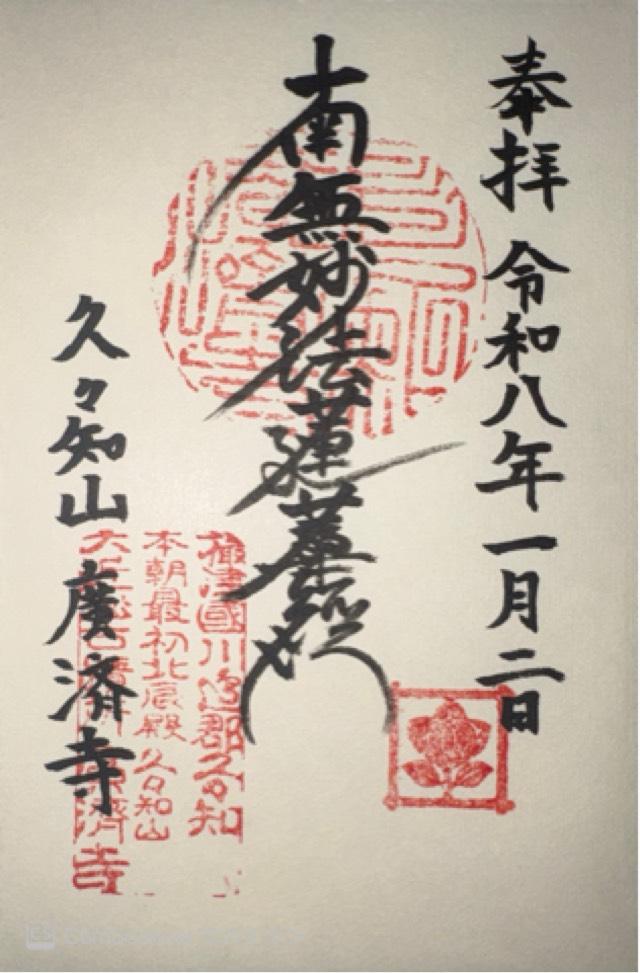 奉拝 令和八年一月二日
南無妙法蓮華経
久々知山 廣済寺
攝津國川邊郡久々知
本朝最初北辰殿 久々知山